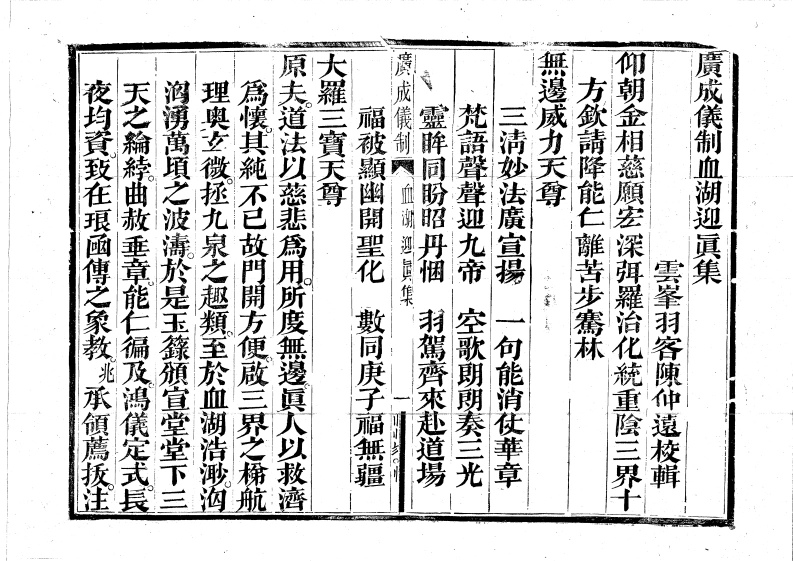 廣成儀制血湖迎眞集
雲峯羽客陳仲遠校輯
仰朝金相慈願宏深弭羅治化統重陰三界十
方欽請降能仁離苦步騫林
無邊威力天尊
三淸妙法廣宣揚 一句能消仗華章
梵語聲聲迎九帝 空歌朗朗奏三光
靈眸同盼昭丹悃 羽駕齊來赴道場
福被顯幽開聖化 數同庚子福無疆
大羅三寶天尊
廣成儀制 血湖迎眞集 一
原夫。道法以慈悲爲用。所度無邊。眞人以救濟
爲懷。其純不已。故門開方便。啟三界之梯航
理奥玄微。拯九泉之趣類。至於血湖浩渺。洶
洶湧萬頃之波濤。於是玉籙頒宣。堂堂下三
天之綸綍。曲赦垂章。能仁徧及。鴻儀定式。長
夜均資。致在琅函。傳之象教。兆承領薦拔。注